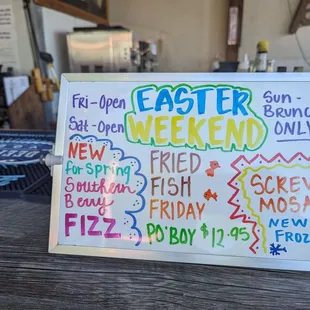 Fri-Open
Sat-Open
EASTER
WEEKEND
Sun-
Brunch
ONLY
NEW
for Spring
Southern
Berry
FIZZ
FRIED
FISH
FRIDAY
PO'BOY $12.95
SCREW
MOSA
NEW
FROZ